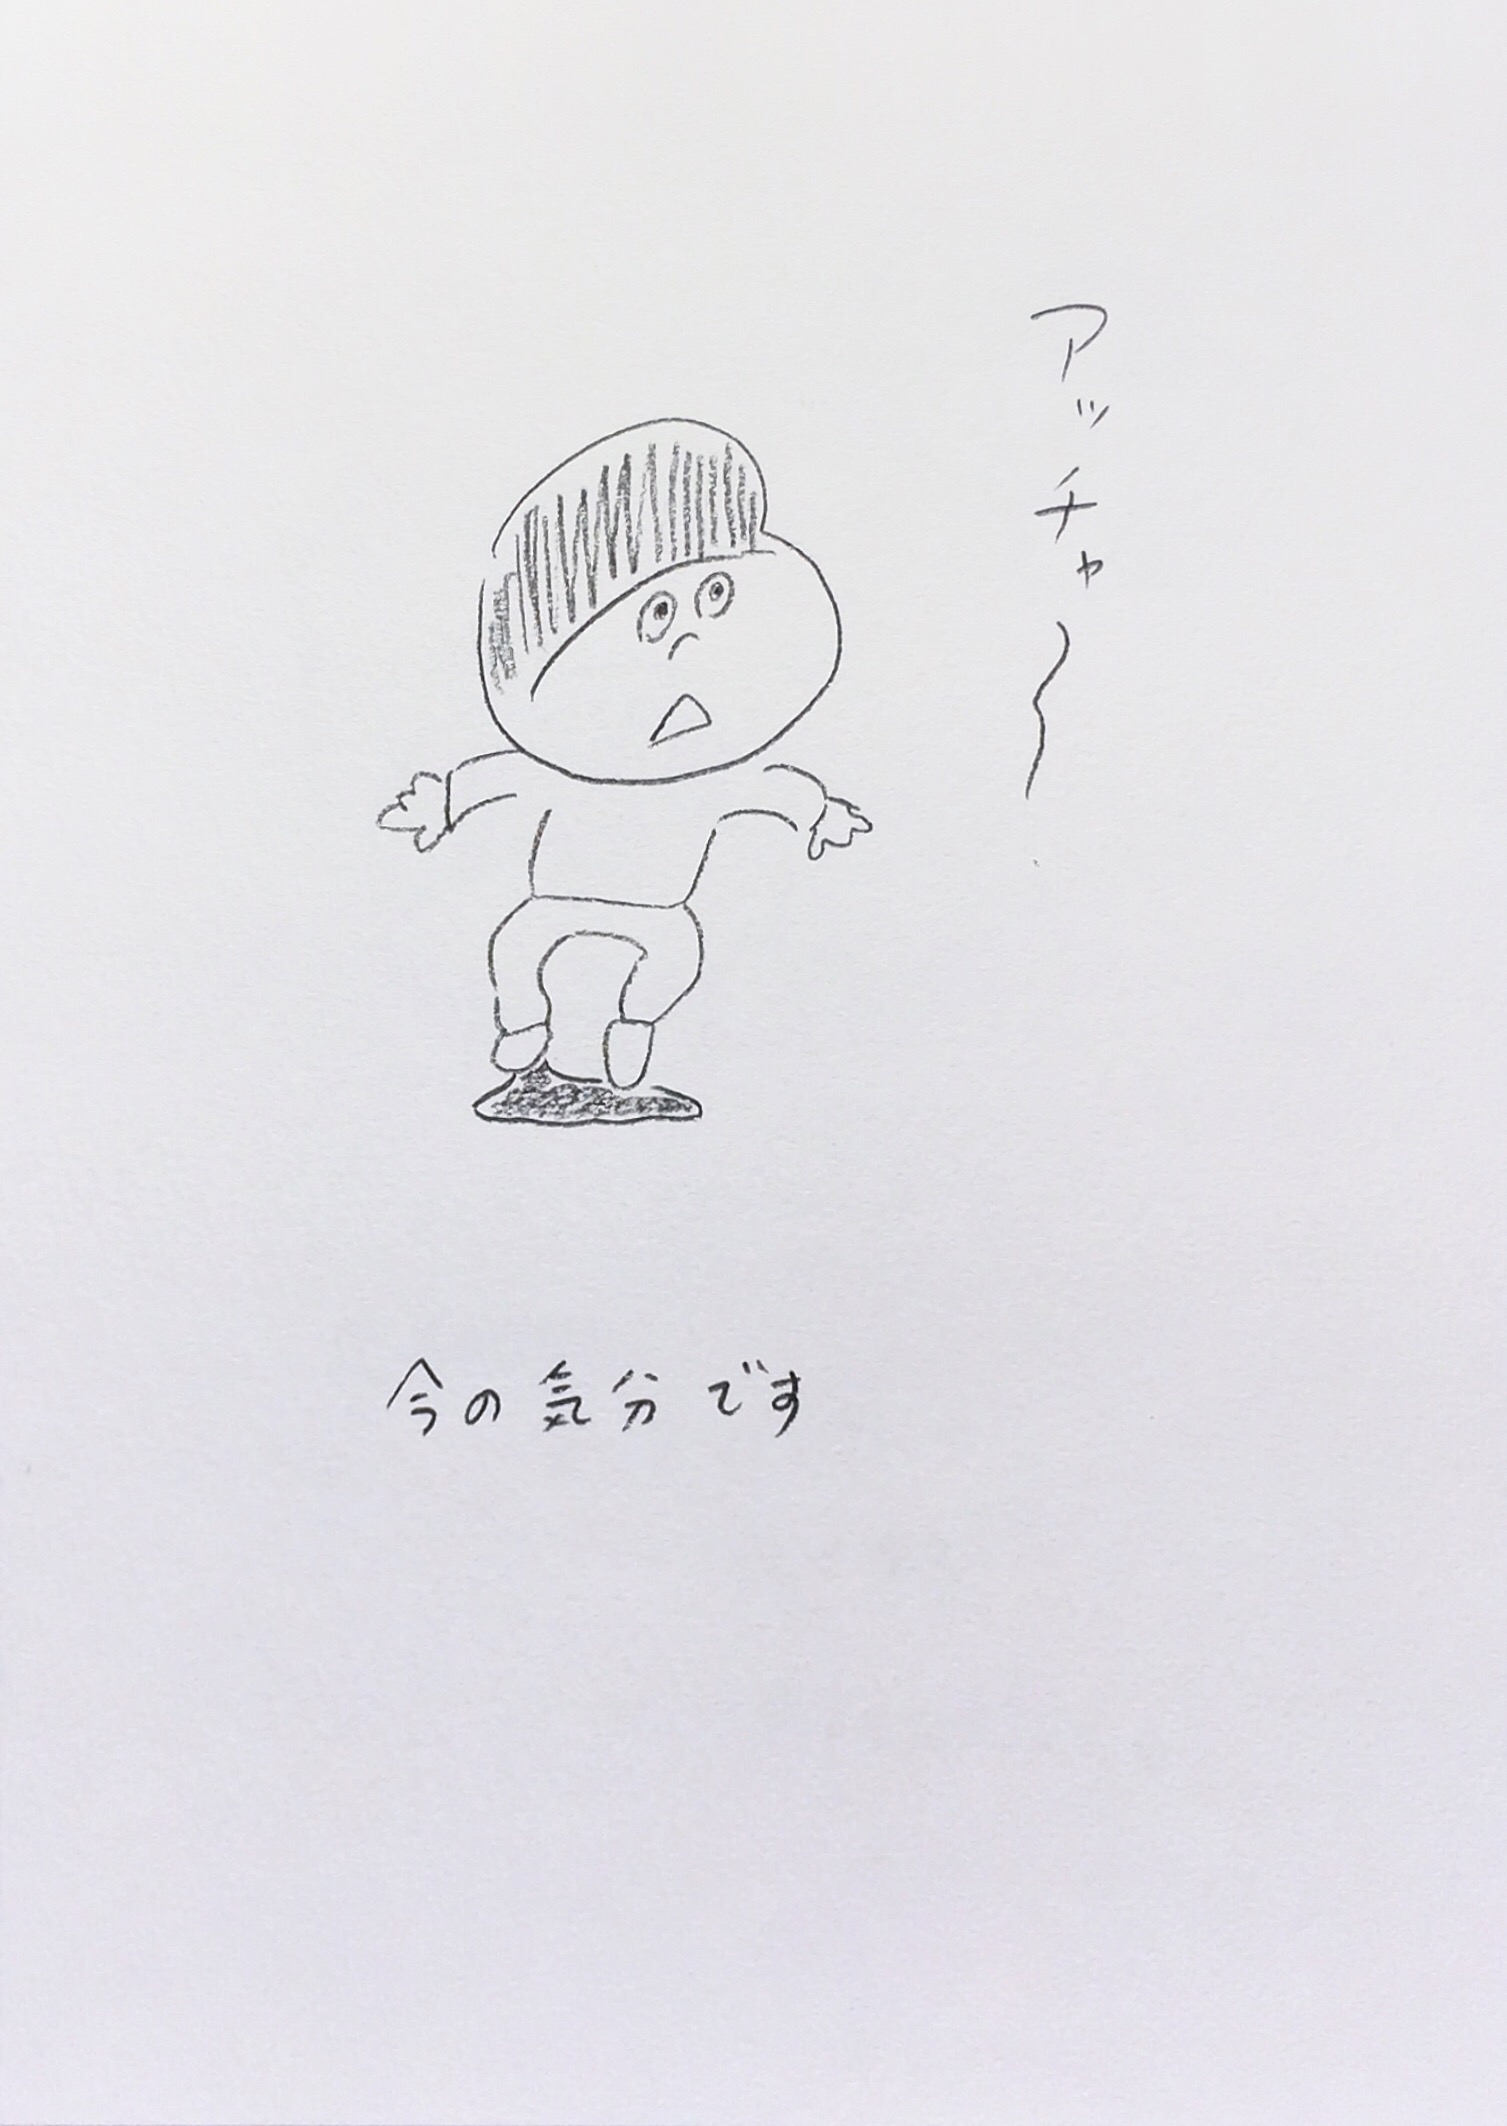 アッチャ〜
今の気分です